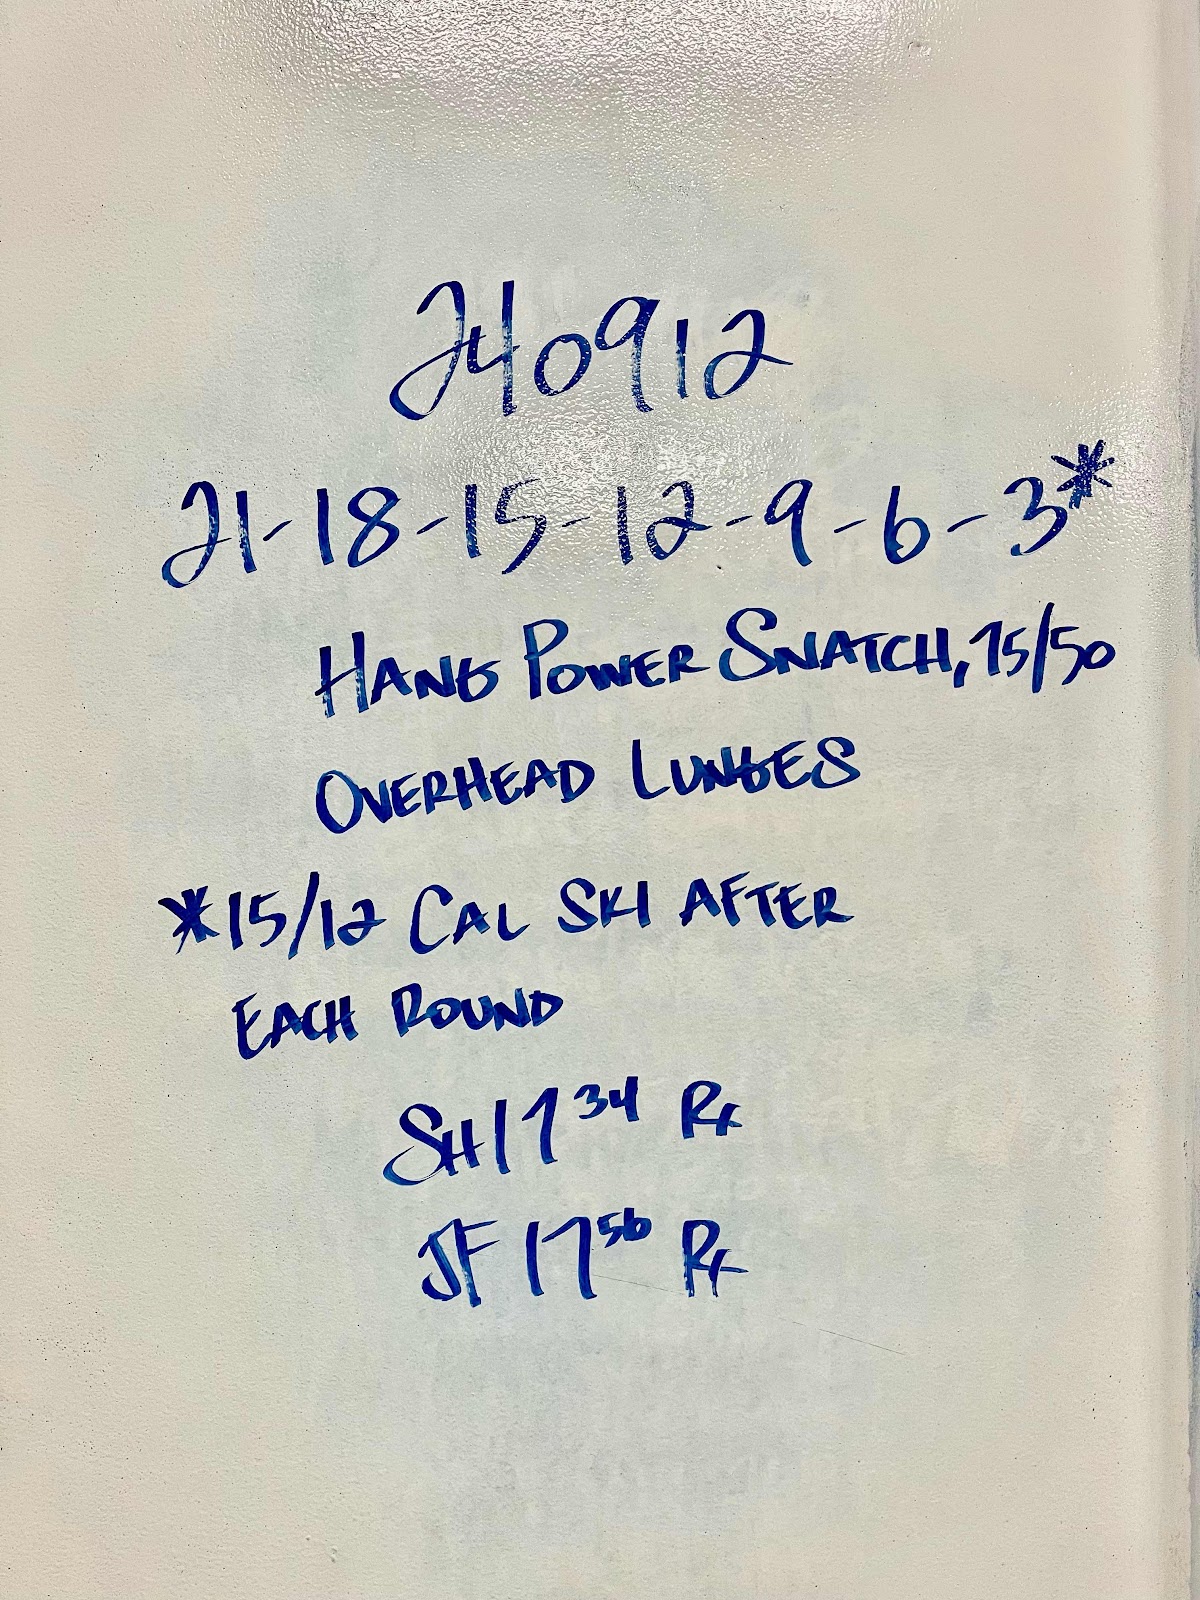 240912
21-18-15-12-9-6-3*
HANG POWER SNATCH, 75/50
OVERHEAD LUNGES
*15/12 CAL SKI AFTER
EACH ROUND
SH 17 34 Rx
JF 17 56 Rx